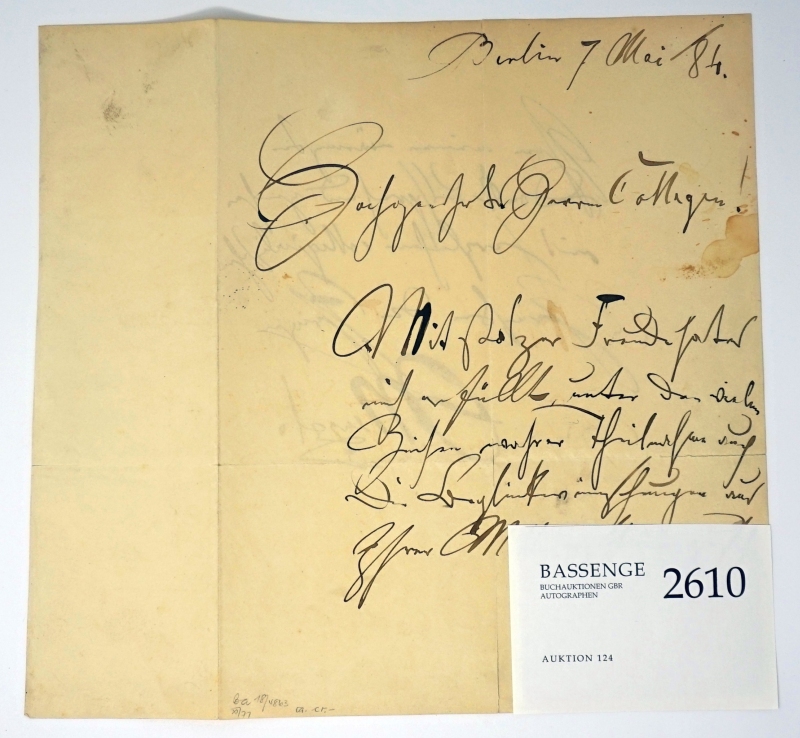 Berlin 7 Mai 84.
Hochgeehrte Herren Collegen!
Mit stolzer Freude hat es
mich erfüllt, unter den vielen
Theilnahme auch
die Beglückwünschungen aus
Ihrer
BASSENGE
BUCHAUKTIONEN GBR
AUTOGRAPHEN
2610
AUKTION 124